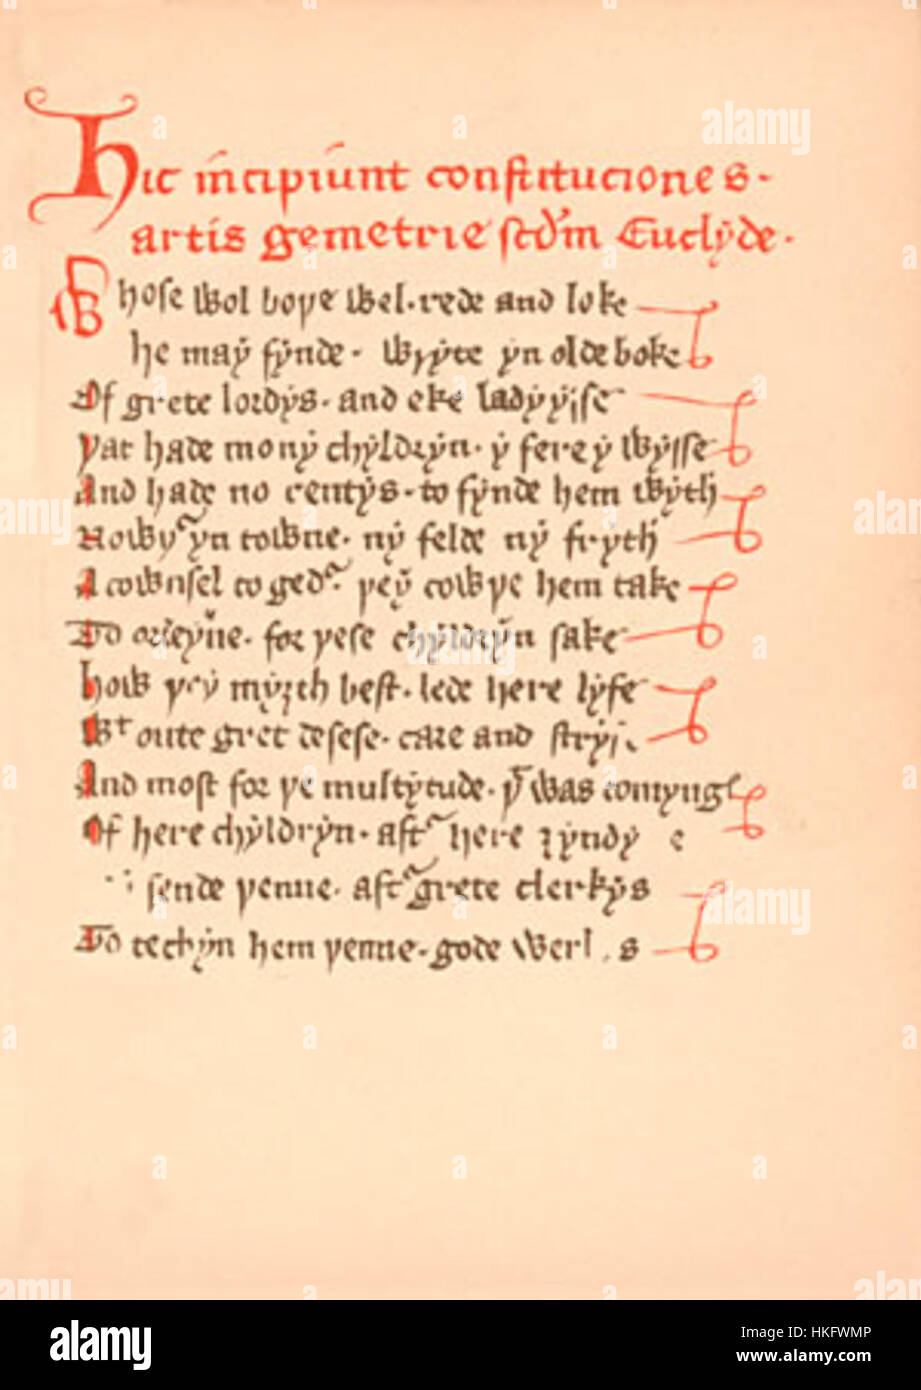 Hic incipiunt constituciones.
artis gemetrie scdm Euclyde.
Whose wol boþe wel. rede and loke
he may fynde. wryte yn olde boke
Of grete lordys. and eke ladyysse
Þat hade mony chyldryn. y fere y wysse
And hade no rentys. to fynde hem wyth
Nowþ' yn towne. ny felde ny fryth
A cownsel to ged' þey cowþe hem take
To ordeyne. for þese chyldryn sake
how þey myȝth best. lede here lyfe
Wt oute gret desese. care and
And most for þe multytude. þt was comyng
Of here chyldryn. aft' here
sende þenne. aft' grete clerkys
To techyn hem þenne. gode
alamy
Image ID: HKFWMP
www.alamy.com